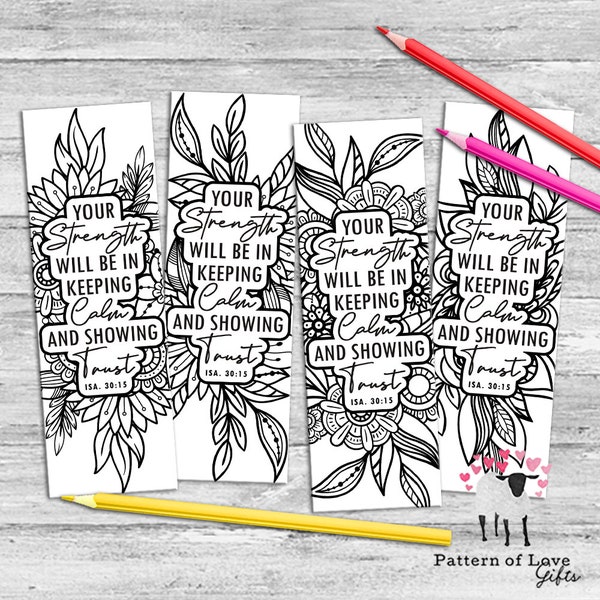 YOUR
Strength
WILL BE IN
KEEPING
Calm
AND SHOWING
Trust
ISA. 30:15
YOUR
Strength
WILL BE IN
KEEPING
Calm
AND SHOWING
Trust
ISA. 30:15
YOUR
Strength
WILL BE IN
KEEPING
Calm
AND SHOWING
Trust
ISA. 30:15
YOUR
Strength
WILL BE IN
KEEPING
Calm
AND SHOWING
Trust
ISA. 30:15
Pattern of Love
Gifts